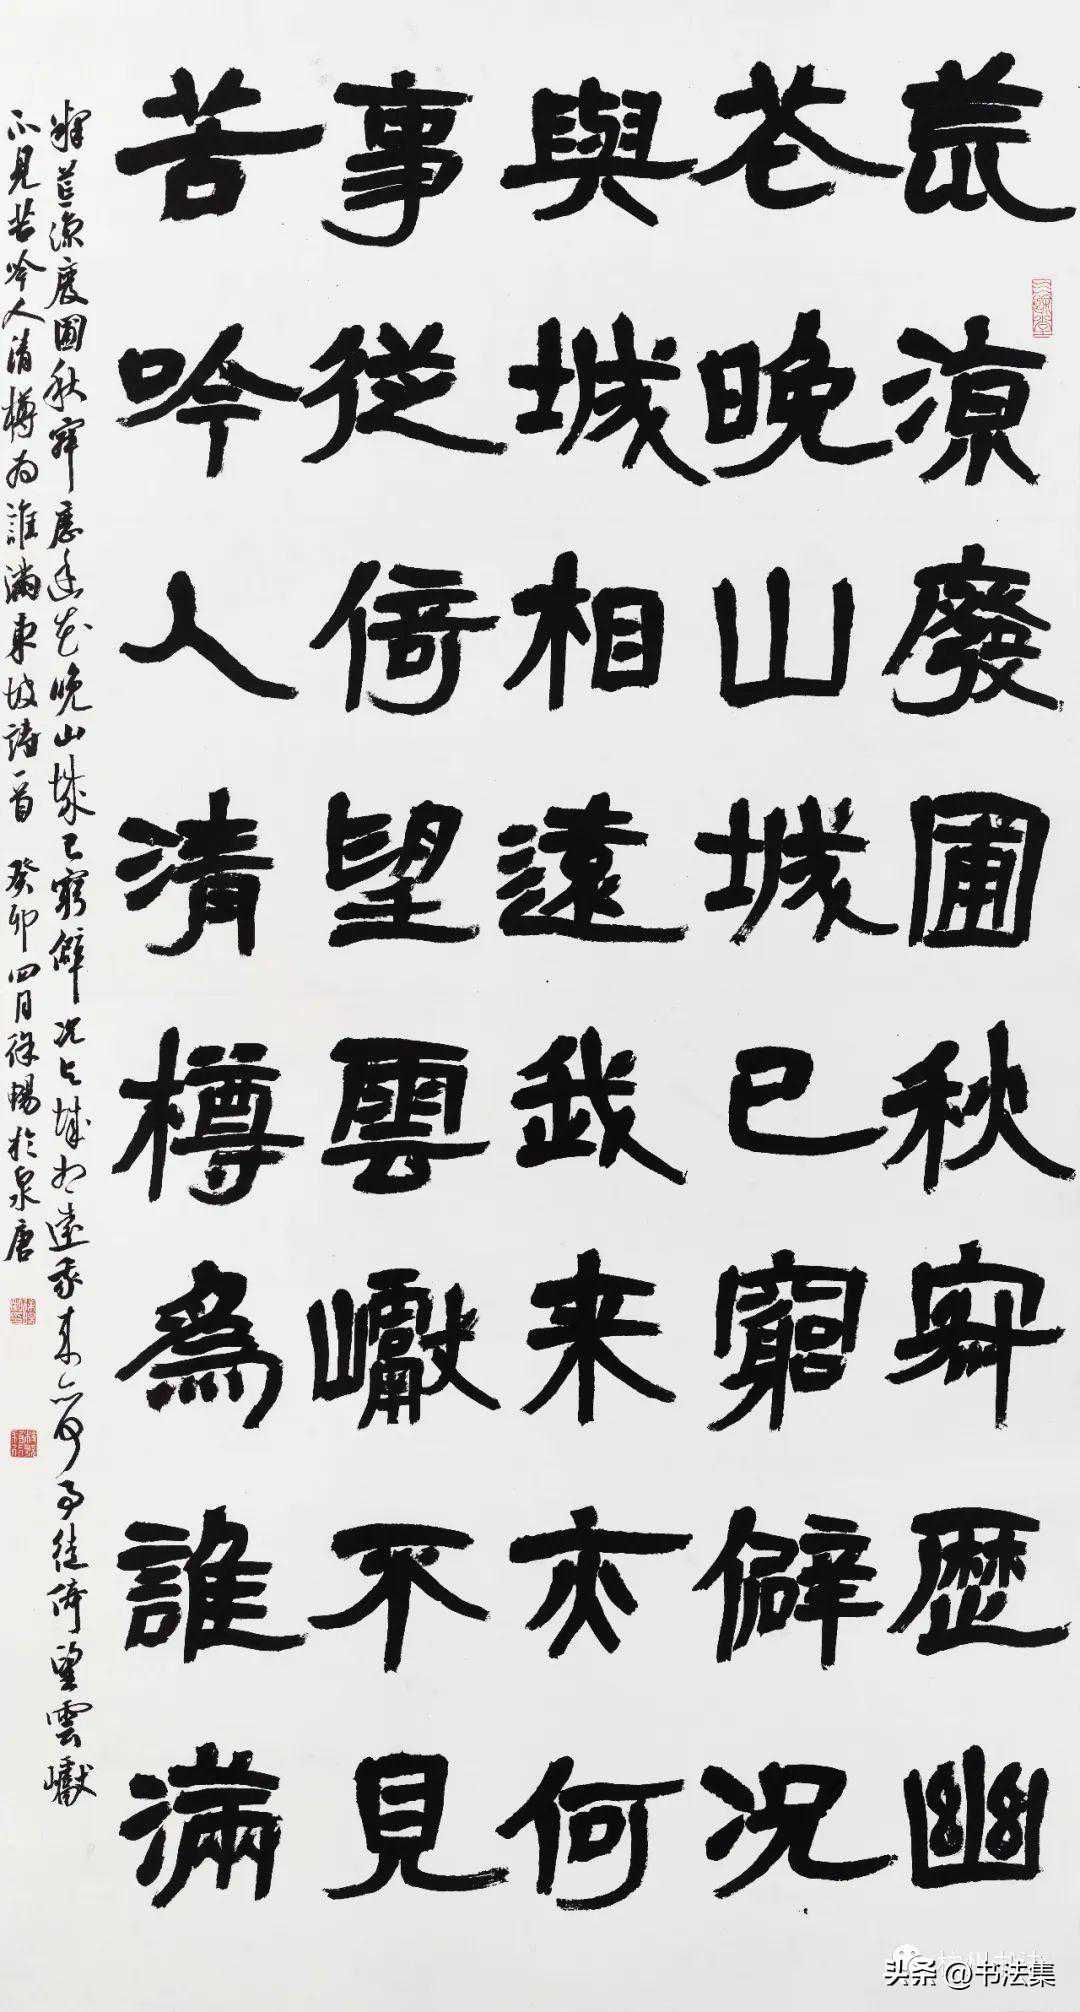 荒涼廢圃秋寂歷幽
花晚山城已窮僻况
與城相遠我来亦何
事徙倚望雲巘不見
苦吟人清樽為誰滿
釋荒涼廢圃秋寂歷幽花晚山城已窮僻况與城相遠我来亦何事徙倚望雲巘
不見苦吟人清樽為誰滿東坡詩一首 癸卯四月徐暢於泉唐
头条 @书法集